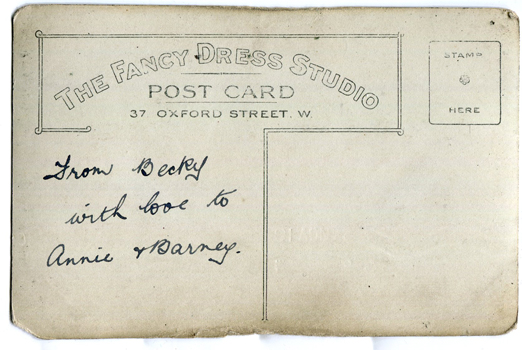 THE FANCY DRESS STUDIO
POST CARD
37 OXFORD STREET. W
STAMP
HERE
From Becky
with love to
Annie & Barney.